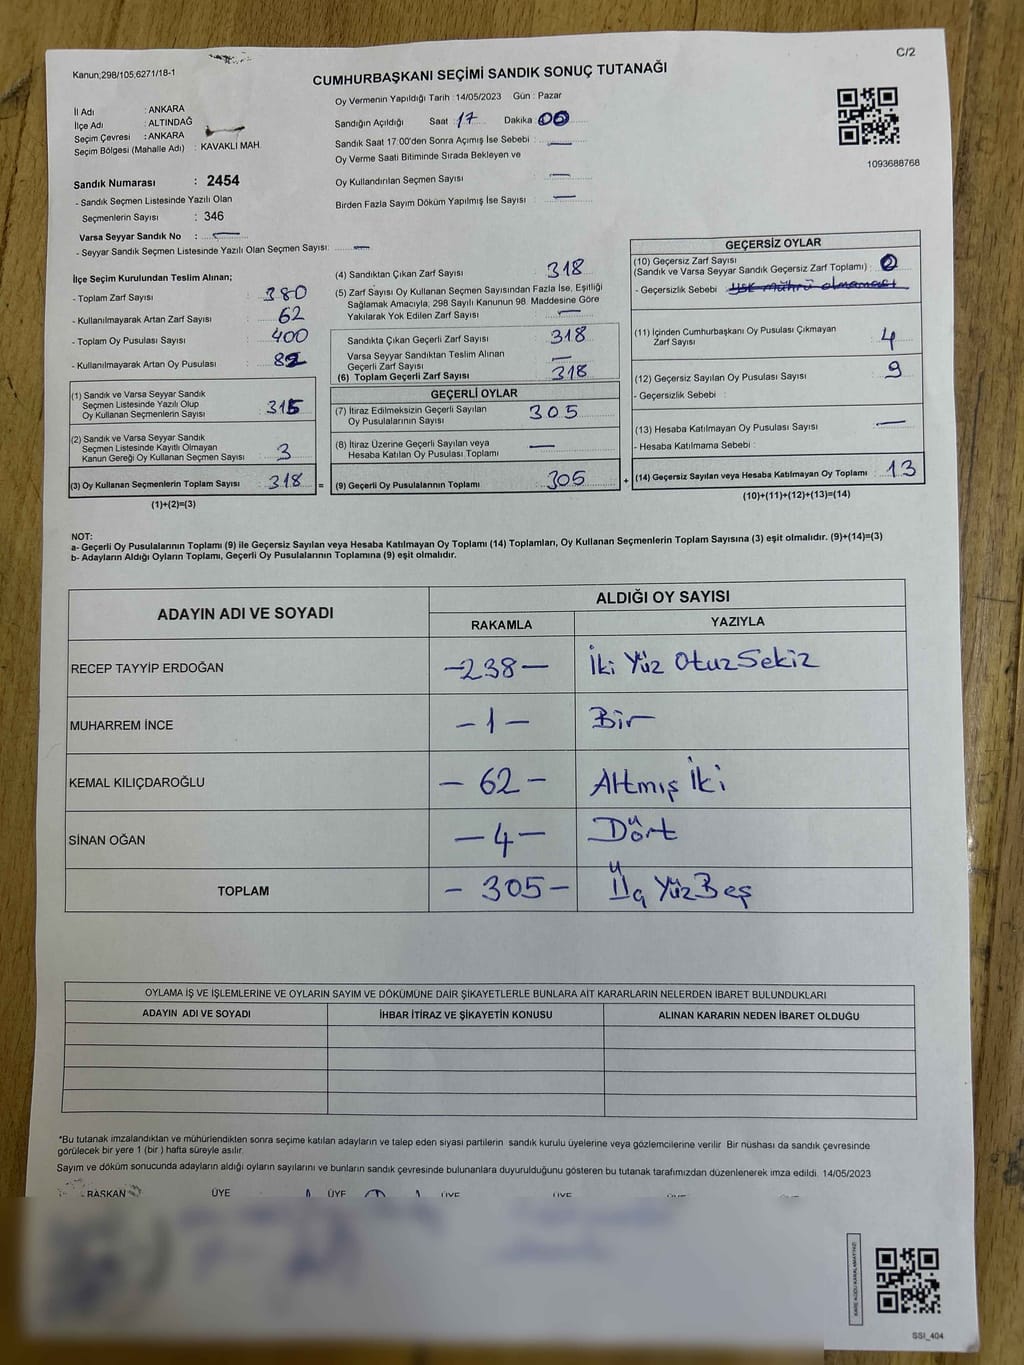 Kanun;298/105,6271/18-1
C/2
CUMHURBAŞKANI SEÇİMİ SANDIK SONUÇ TUTANAĞI
İl Adı : ANKARA
İlçe Adı : ALTINDAĞ
Seçim Çevresi : ANKARA
Seçim Bölgesi (Mahalle Adı) : KAVAKLI MAH.
Oy Vermenin Yapıldığı Tarih : 14/05/2023 Gün : Pazar
Sandığın Açıldığı Saat : 17 Dakika 00
Sandık Saat 17:00'den Sonra Açımış İse Sebebi : —
Oy Verme Saati Bitiminde Sırada Bekleyen ve
Oy Kullandırılan Seçmen Sayısı : —
Birden Fazla Sayım Döküm Yapılmış İse Sayısı : —
1093688768
Sandık Numarası : 2454
- Sandık Seçmen Listesinde Yazılı Olan
Seçmenlerin Sayısı : 346
Varsa Seyyar Sandık No : —
- Seyyar Sandık Seçmen Listesinde Yazılı Olan Seçmen Sayısı: —
İlçe Seçim Kurulundan Teslim Alınan;
- Toplam Zarf Sayısı : 380
- Kullanılmayarak Artan Zarf Sayısı : 62
- Toplam Oy Pusulası Sayısı : 400
- Kullanılmayarak Artan Oy Pusulası : 82
(1) Sandık ve Varsa Seyyar Sandık
Seçmen Listesinde Yazılı Olup
Oy Kullanan Seçmenlerin Sayısı : 315
(2) Sandık ve Varsa Seyyar Sandık
Seçmen Listesinde Kayıtlı Olmayan
Kanun Gereği Oy Kullanan Seçmen Sayısı : 3
(3) Oy Kullanan Seçmenlerin Toplam Sayısı : 318 =
(1)+(2)=(3)
(4) Sandıktan Çıkan Zarf Sayısı : 318
(5) Zarf Sayısı Oy Kullanan Seçmen Sayısından Fazla İse, Eşitliği
Sağlamak Amacıyla; 298 Sayılı Kanunun 98. Maddesine Göre
Yakılarak Yok Edilen Zarf Sayısı : —
Sandıkta Çıkan Geçerli Zarf Sayısı : 318
Varsa Seyyar Sandıktan Teslim Alınan
Geçerli Zarf Sayısı : —
(6) Toplam Geçerli Zarf Sayısı : 318
GEÇERLİ OYLAR
(7) İtiraz Edilmeksizin Geçerli Sayılan
Oy Pusulalarının Sayısı : 305
(8) İtiraz Üzerine Geçerli Sayılan veya
Hesaba Katılan Oy Pusulası Toplamı : —
(9) Geçerli Oy Pusulalarının Toplamı : 305 +
GEÇERSİZ OYLAR
(10) Geçersiz Zarf Sayısı
(Sandık ve Varsa Seyyar Sandık Geçersiz Zarf Toplamı) : 0
- Geçersizlik Sebebi : YSK mührü olmaması
(11) İçinden Cumhurbaşkanı Oy Pusulası Çıkmayan
Zarf Sayısı : 4
(12) Geçersiz Sayılan Oy Pusulası Sayısı : 9
- Geçersizlik Sebebi :
(13) Hesaba Katılmayan Oy Pusulası Sayısı : —
- Hesaba Katılmama Sebebi :
(14) Geçersiz Sayılan veya Hesaba Katılmayan Oy Toplamı : 13
(10)+(11)+(12)+(13)=(14)
NOT:
a- Geçerli Oy Pusulalarının Toplamı (9) ile Geçersiz Sayılan veya Hesaba Katılmayan Oy Toplamı (14) Toplamları, Oy Kullanan Seçmenlerin Toplam Sayısına (3) eşit olmalıdır. (9)+(14)=(3)
b- Adayların Aldığı Oyların Toplamı, Geçerli Oy Pusulalarının Toplamına (9) eşit olmalıdır.
ADAYIN ADI VE SOYADI
ALDIĞI OY SAYISI
RAKAMLA YAZIYLA
RECEP TAYYİP ERDOĞAN —238— İki Yüz Otuz Sekiz
MUHARREM İNCE —1— Bir
KEMAL KILIÇDAROĞLU —62— Altmış İki
SİNAN OĞAN —4— Dört
TOPLAM —305— Üç Yüz Beş
OYLAMA İŞ VE İŞLEMLERİNE VE OYLARIN SAYIM VE DÖKÜMÜNE DAİR ŞİKAYETLERLE BUNLARA AİT KARARLARIN NELERDEN İBARET BULUNDUKLARI
ADAYIN ADI VE SOYADI İHBAR İTİRAZ VE ŞİKAYETİN KONUSU ALINAN KARARIN NEDEN İBARET OLDUĞU
*Bu tutanak imzalandıktan ve mühürlendikten sonra seçime katılan adayların ve talep eden siyasi partilerin sandık kurulu üyelerine veya gözlemcilerine verilir Bir nüshası da sandık çevresinde
görülecek bir yere 1 (bir ) hafta süreyle asılır.
Sayım ve döküm sonucunda adayların aldığı oyların sayılarını ve bunların sandık çevresinde bulunanlara duyurulduğunu gösteren bu tutanak tarafımızdan düzenlenerek imza edildi. 14/05/2023
BAŞKAN ÜYE ÜYE ÜYE ÜYE
SSİ_404